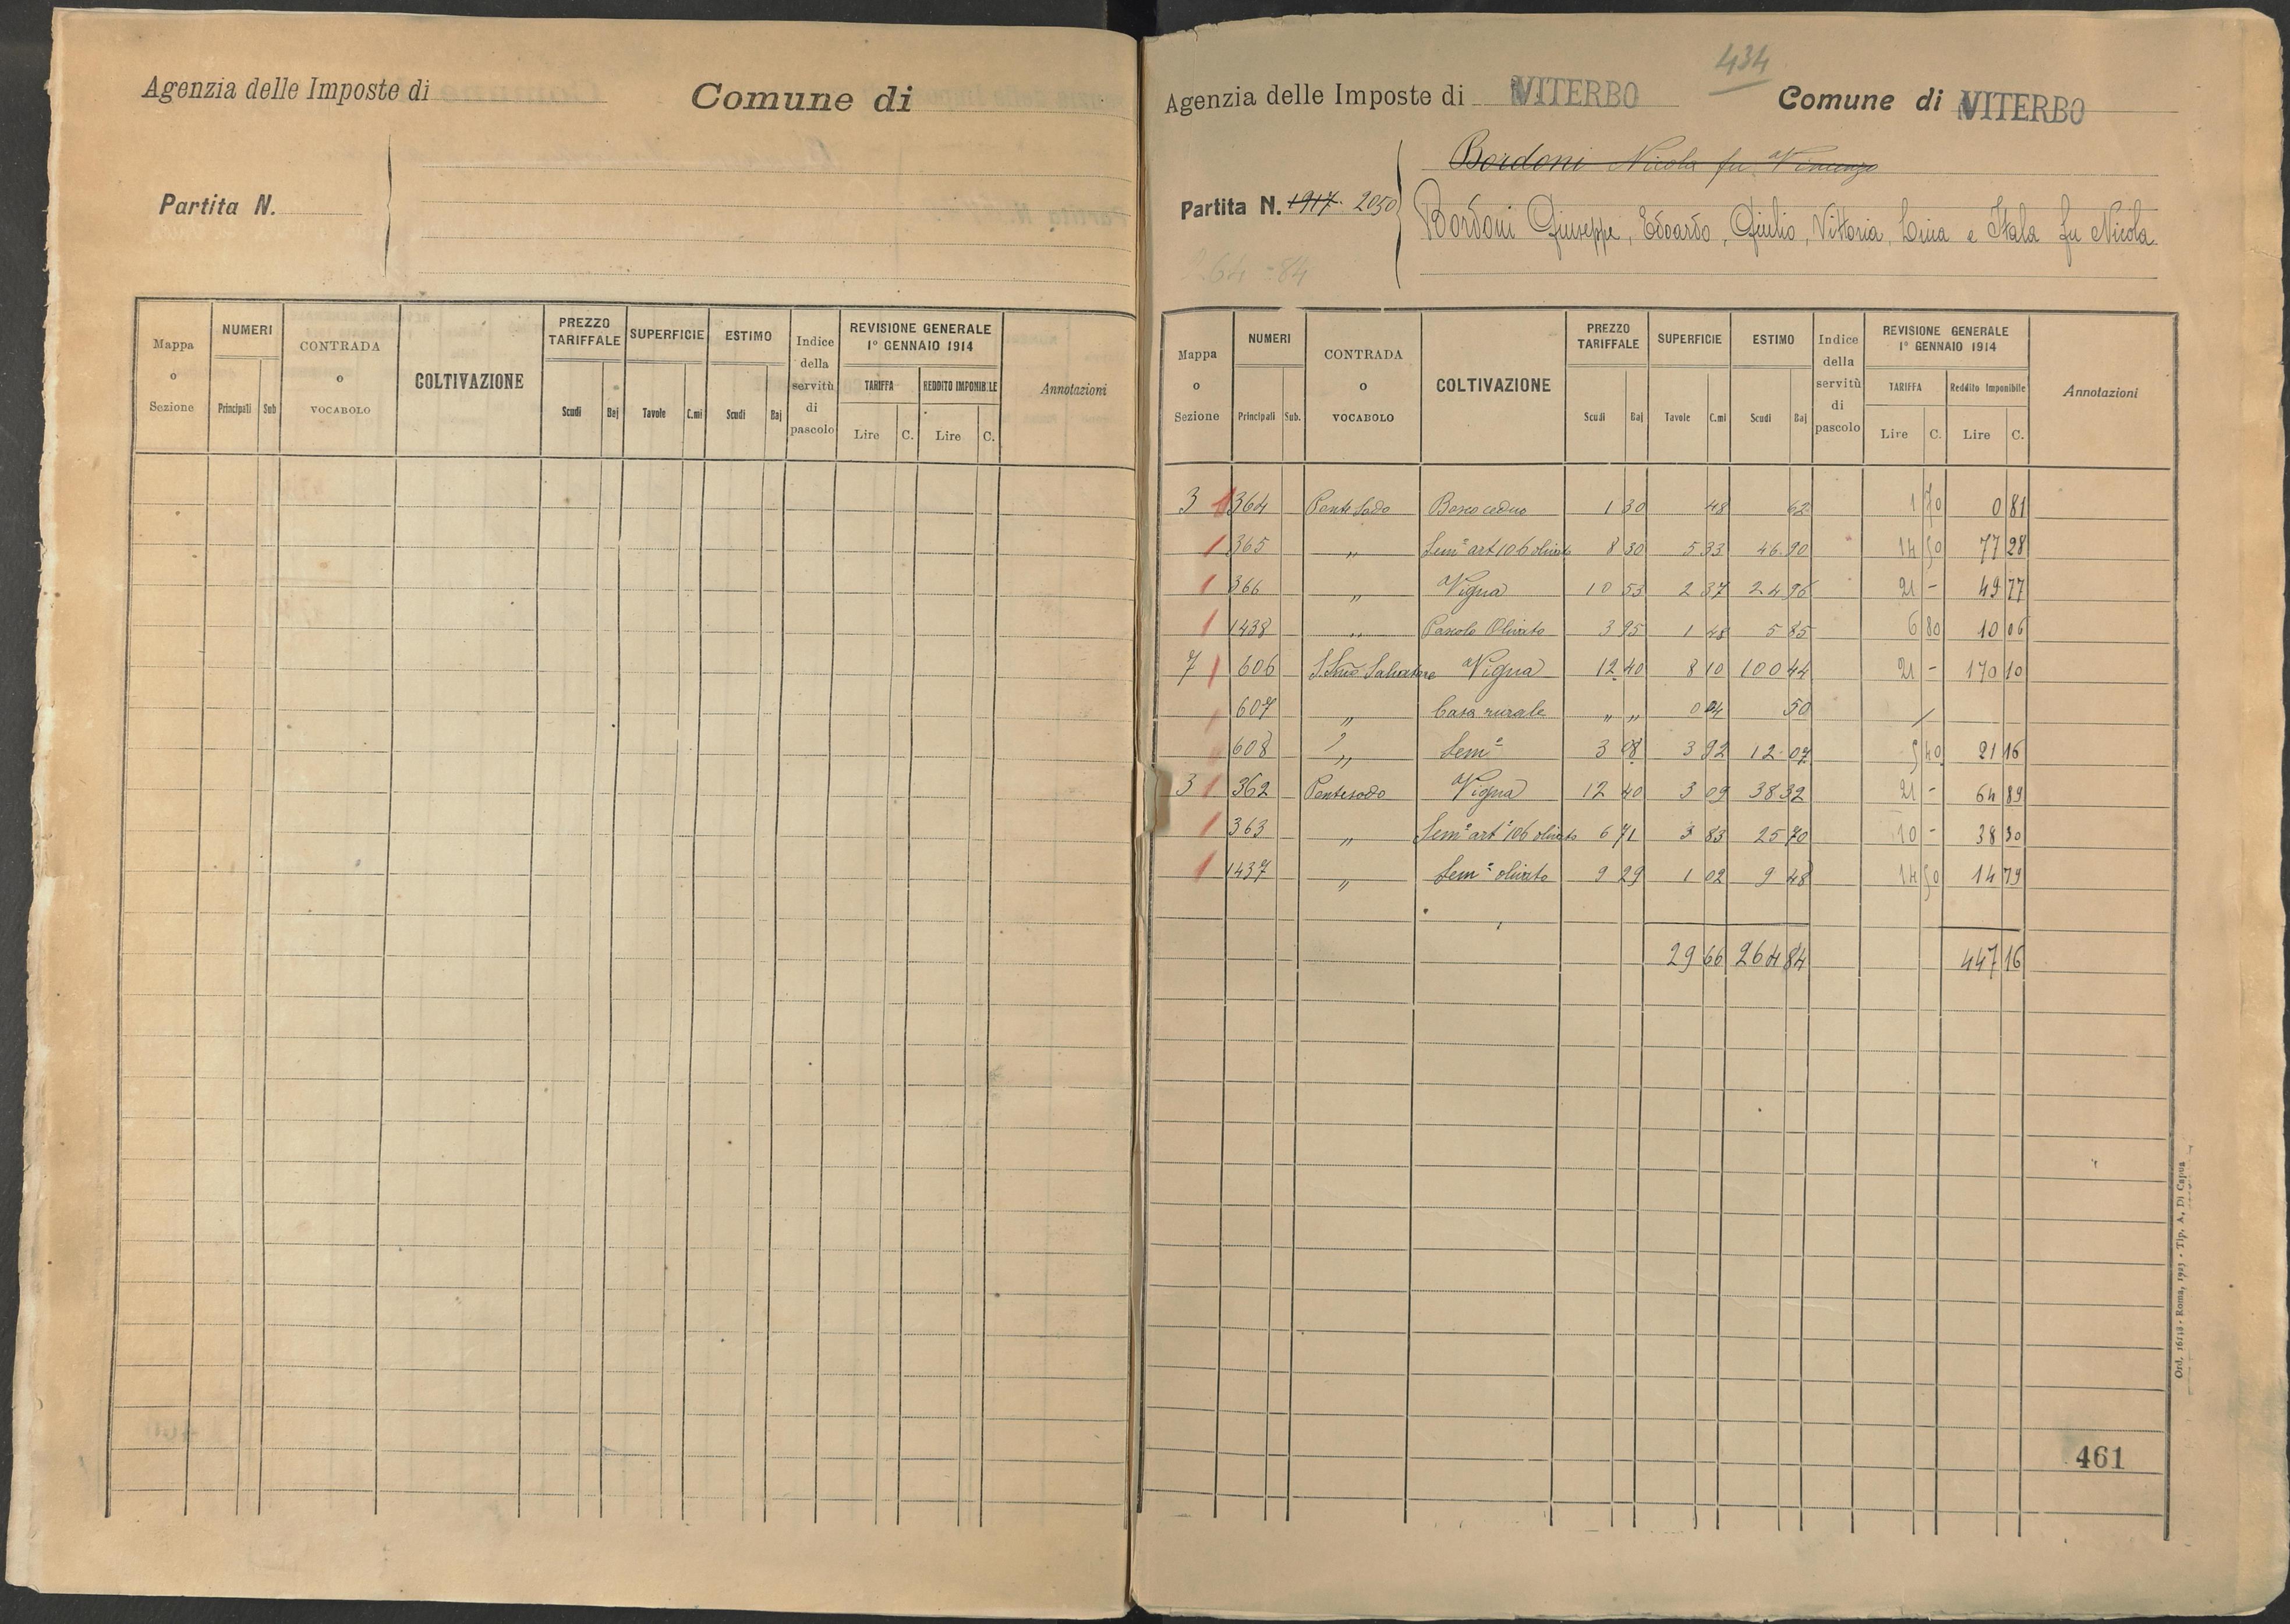 Agenzia delle Imposte di
Comune di
Partita N.
Mappa o Sezione
NUMERI
Principali Sub
CONTRADA o VOCABOLO
COLTIVAZIONE
PREZZO TARIFFALE
Scudi Baj
SUPERFICIE
Tavole C.mi
ESTIMO
Scudi Baj
Indice della servitù di pascolo
REVISIONE GENERALE
1° GENNAIO 1914
TARIFFA REDDITO IMPONIBILE
Lire C. Lire C.
Annotazioni
434
Agenzia delle Imposte di VITERBO
Comune di VITERBO
Bordoni Nicola fu Vincenzo
Partita N. 1917 2050
Bordoni Giuseppe, Edoardo, Giulio, Vittoria, Lina e Itala fu Nicola
264=84
Mappa o Sezione
NUMERI
Principali Sub.
CONTRADA o VOCABOLO
COLTIVAZIONE
PREZZO TARIFFALE
Scudi Baj
SUPERFICIE
Tavole C.mi
ESTIMO
Scudi Baj
Indice della servitù di pascolo
REVISIONE GENERALE
1° GENNAIO 1914
TARIFFA Reddito Imponibile
Lire C. Lire C.
Annotazioni
3 364 Ponte Sodo Bosco ceduo 1 30 48 62 1 70 0 81
365 " Semo art 106 olivato 8 30 5 33 46 90 14 50 77 28
366 " Vigna 10 53 2 37 24 96 21 - 49 77
1438 " Pascolo Olivato 3 95 1 48 5 85 6 80 10 06
7 606 Salvatore Vigna 12 40 8 10 100 44 21 - 170 10
607 " Casa rurale " " 0 04 50 /
608 " Semo 3 08 3 92 12 07 5 40 21 16
3 362 Pontesodo Vigna 12 40 3 09 38 32 21 - 64 89
363 " Semo arto 106 olivato 6 71 3 83 25 70 10 - 38 30
1437 " Semo olivato 9 29 1 02 9 48 14 50 14 79
29 66 264 84 447 16
461
Ord. 16118 - Roma, 1923 - Tip. A. Di Capua